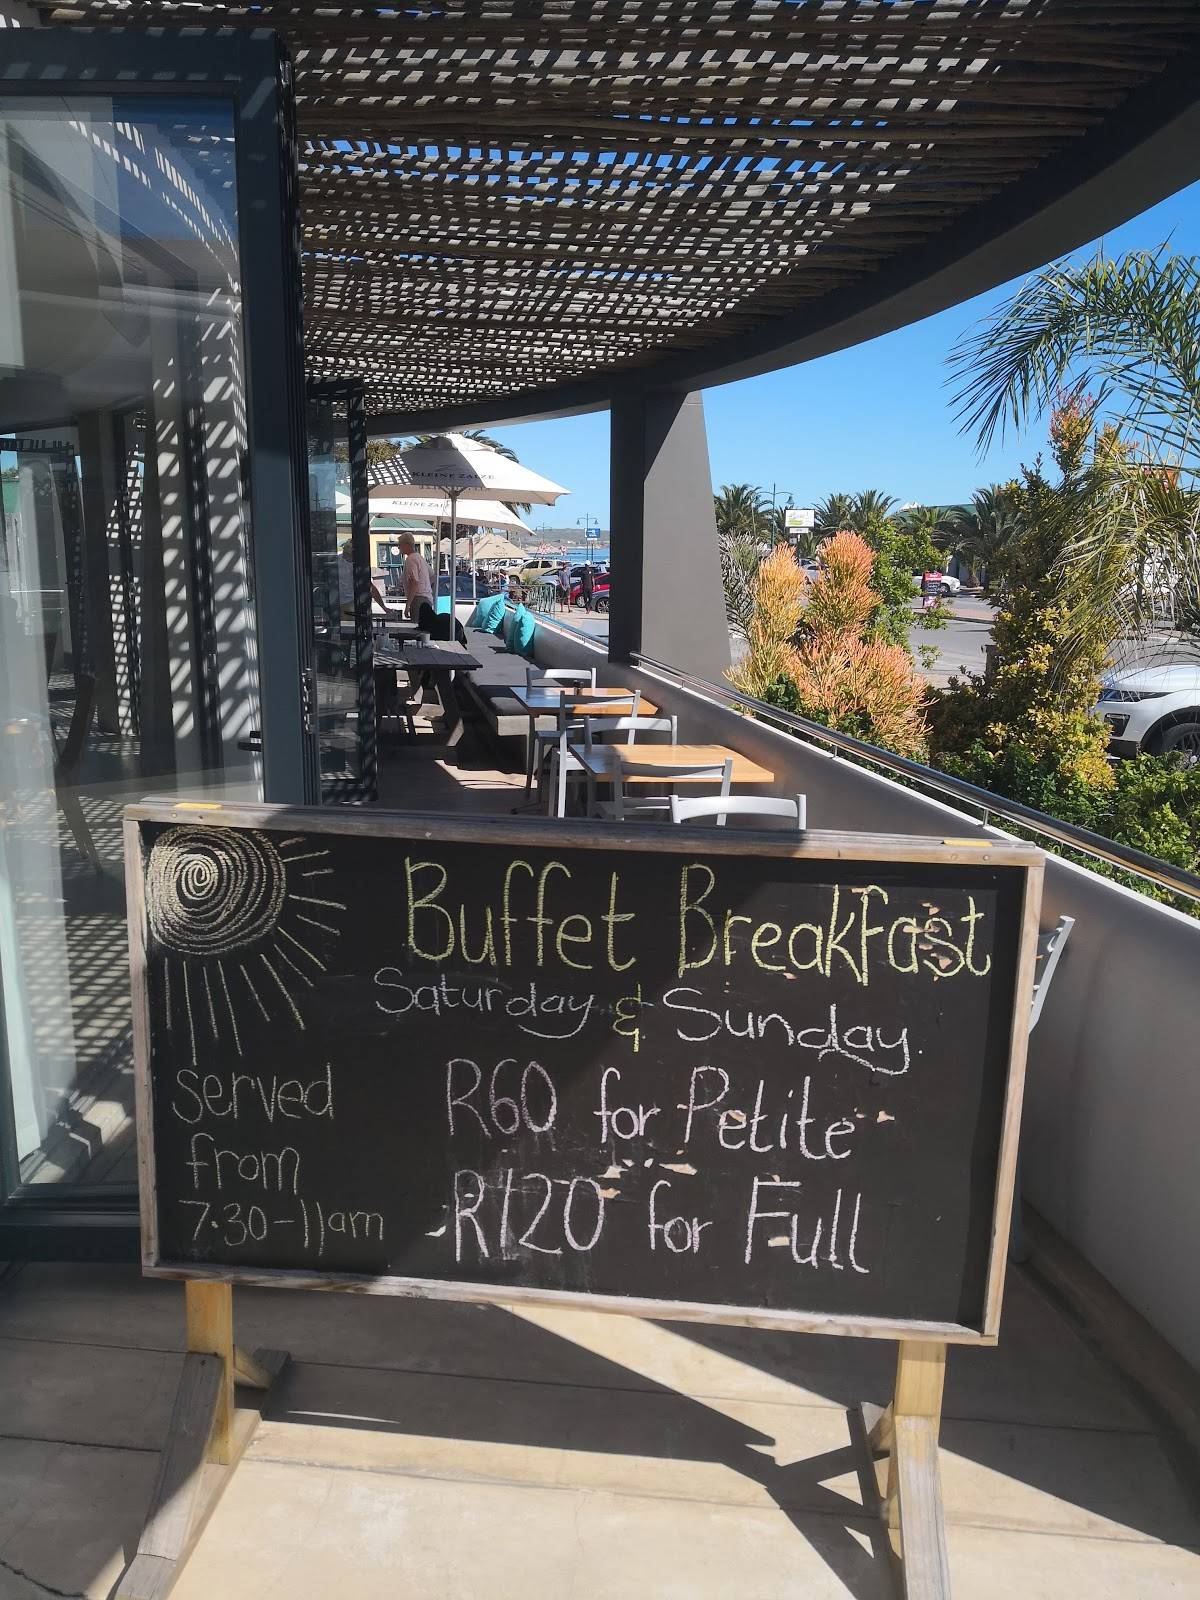 KLEINE ZALZE
KLEINE ZAL
Buffet Breakfast
Saturday & Sunday.
served
from
7.30-11am
R60 for Petite
R120 for Full